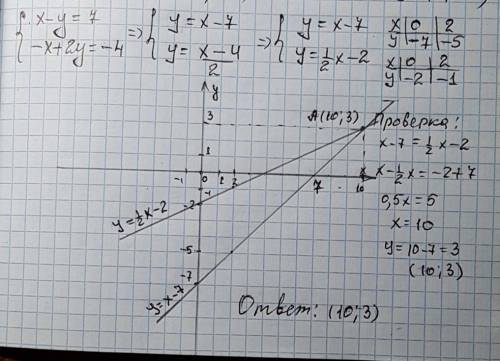 { x-y=7 => { y=x-7 => { y=x-7
{ -x+2y=-4 { y=x-4/2 { y=1/2x-2
x|0|2
y|-7|-5
x|0|2
y|-2|-1
y
3
1
-1 0 1 2 7 10 x
-1
-2
-5
-7
A(10;3)
y=1/2x-2
y=x-7
Проверка:
x-7=1/2x-2
x-1/2x=-2+7
0,5x=5
x=10
y=10-7=3
(10;3)
Ответ: (10;3)